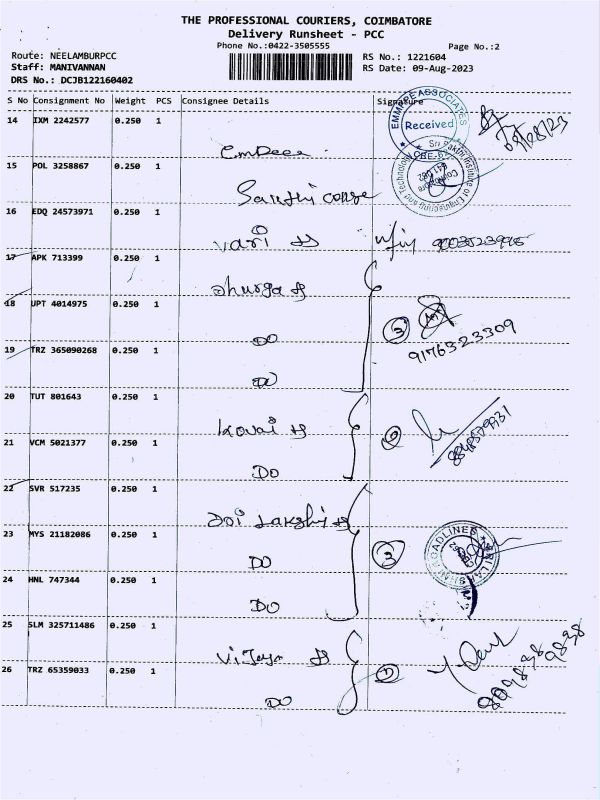 THE PROFESSIONAL COURIERS, COIMBATORE
Delivery Runsheet - PCC
Phone No.:0422-3505555
Page No.:2
Route: NEELAMBURPCC
RS No.: 1221604
Staff: MANIVANNAN
RS Date: 09-Aug-2023
DRS No.: DCJB122160402
S No Consignment No Weight PCS Consignee Details Signature
14 IXM 2242577 0.250 1
EMMPEE ASSOCIATES
Received
15 POL 3258867 0.250 1
Sri Sakthi Institute of Engineering and Technology
Coimbatore
16 EDQ 24573971 0.250 1
17 APK 713399 0.250 1
Dhurga
18 UPT 4014975 0.250 1
DO
3
9176323309
19 TRZ 365090268 0.250 1
DO
20 TUT 801643 0.250 1
Kovai
21 VCM 5021377 0.250 1
DO
22 SVR 517235 0.250 1
23 MYS 21182086 0.250 1
DO
3
24 HNL 747344 0.250 1
DO
25 SLM 325711486 0.250 1
Vijaya
26 TRZ 65359033 0.250 1
DO